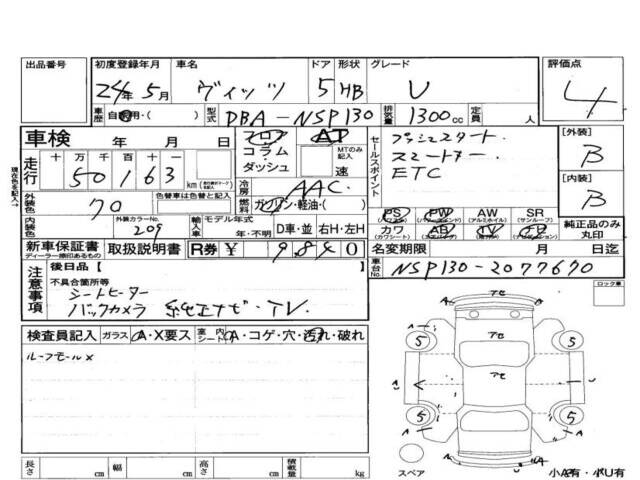 出品番号 初度登録年月 車名 ドア 形状 グレード 評価点
24年5月 ヴィッツ 5 HB U 4
車歴 自家用・( ) 型式 DBA-NSP130 排気量 1300cc 定員 人
車検 年 月 日 フロア AT
コラム・ダッシュ MTのみ記入 速
走行 十万千百十一
50163 km
冷房 AAC
燃料 ガソリン・軽油・( )
セールスポイント
プッシュスタート
スマートキー
ETC
[外装] B
[内装] B
外装色 70 色替車は色替前色を記入
内装色 外装カラーNo. 209
輸入車 モデル年式 年・不明 D車・並 右H・左H
PS PW AW SR
(パワーステアリング) (パワーウィンド) (アルミホイル) (サンルーフ)
カワ AB TV ナビ
(カワシート) (エアバッグ)
純正品のみ丸印
新車保証書 取扱説明書 R券 ¥ 9840
ディーラー捺印あるもの
名変期限 月 日迄
車台No. NSP130-2077670
現在色を記入→
注意事項
後日品【
不具合箇所等
シートヒーター
バックカメラ 純正ナビ・TV
ロック車
検査員記入 ガラス A・X要ス 室内シート A・コゲ・穴・汚れ・破れ
ルーフモールX
アセ
5 5
アセ
アセ
A A U
5 5
A
スペア
小A有・小U有
長さ cm 幅 cm 高さ cm 積載量 kg